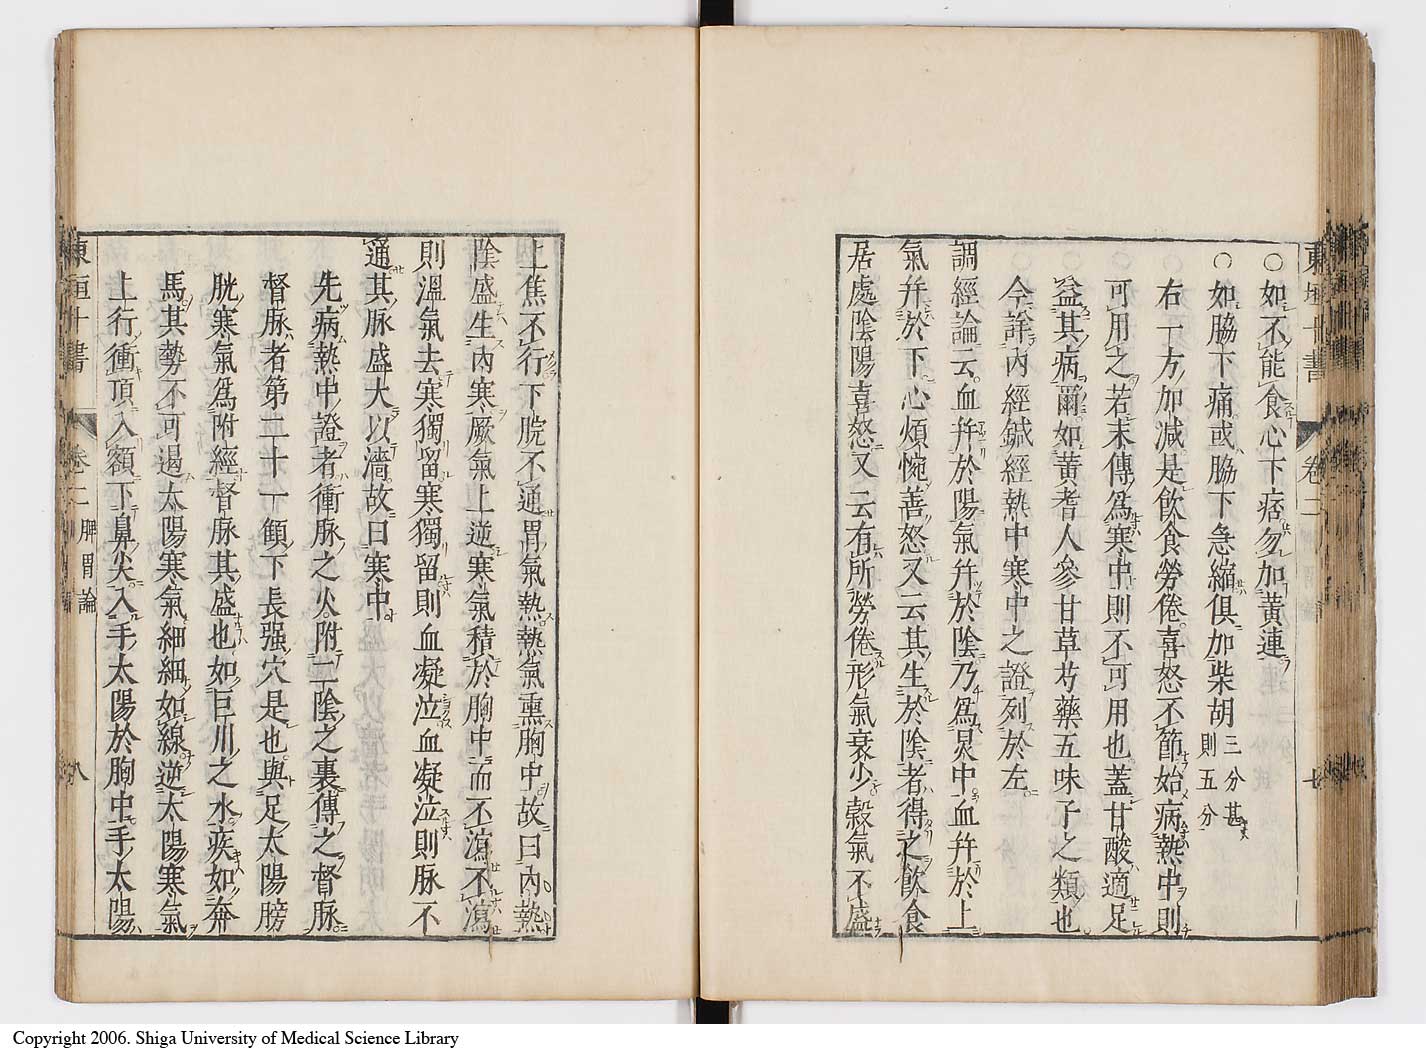 東垣十書 卷二 七
○如不能食心下痞勿加黃連
○如脇下痛或脇下急縮俱加柴胡三分甚則五分
右一方加減是飲食勞倦喜怒不節始病熱中則
可用之若末傳爲寒中則不可用也蓋甘酸適足
益其病爾如黃耆人參甘草芍藥五味子之類也
今詳內經鍼經熱中寒中之證列於左
調經論云血幷於陽氣幷於陰乃爲炅中血幷於上
氣幷於下心煩惋善怒又云其生於陰者得之飲食
居處陰陽喜怒又云有所勞倦形氣衰少穀氣不盛
上焦不行下脘不通胃氣熱熱氣熏胸中故曰內熱
陰盛生內寒厥氣上逆寒氣積於胸中而不瀉不瀉
則溫氣去寒獨留寒獨留則血凝泣血凝泣則脉不
通其脉盛大以濇故曰寒中
先病熱中證者衝脉之火附二陰之裏傳之督脉
督脉者第二十一顀下長强穴是也與足太陽膀
胱寒氣爲附經督脉其盛也如巨川之水疾如奔
馬其勢不可遏太陽寒氣細細如線逆太陽寒氣
上行衝頂入額下鼻尖入手太陽於胸中手太陽
東垣十書 卷二 脾胃論 八
Copyright 2006. Shiga University of Medical Science Library